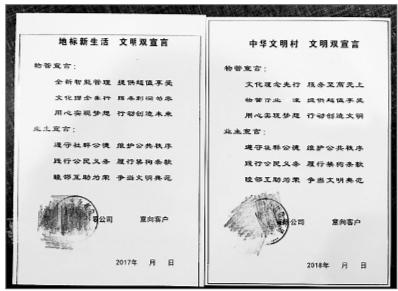 地标新生活 文明双宣言
物管宣言：
全新智能管理 提供超值享受
文化理念先行 服务
用心实现梦想 行动创造未来
业主宣言：
遵守社群公德 维护公共秩序
践行公民义务 履行禁拘条款
睦邻互助为荣 争当文明典范
公司 意向客户
2017年 月 日
中华文明村 文明双宣言
物管宣言：
文化理念先行 服务至高无上
物管行业一流 提供超值享受
用心实现梦想 行动创造文明
业主宣言：
遵守社群公德 维护公共秩序
践行公民义务 履行禁拘条款
睦邻互助为荣 争当文明典范
公司 意向客户
2018年 月 日